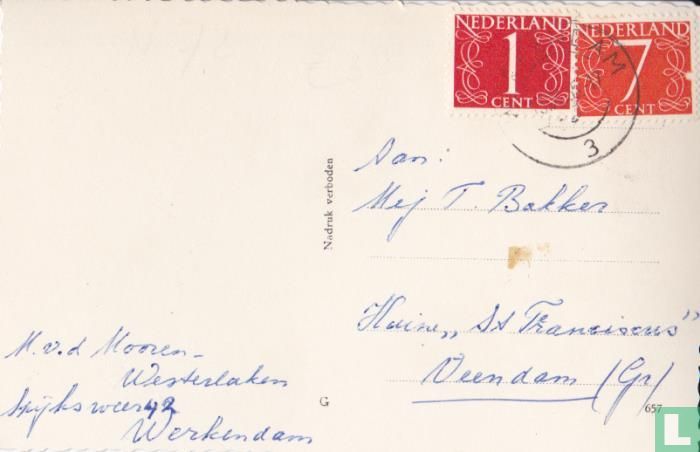 NEDERLAND NEDERLAND
1 7
CENT CENT
AM
3
Aan:
Mej T. Bakker
Nadruk verboden
Huize „St Franciscus"
Veendam (Gr)
M.v.d Mooren-
Westerlaken
42
Werkendam
G
657
L
© LastDodo